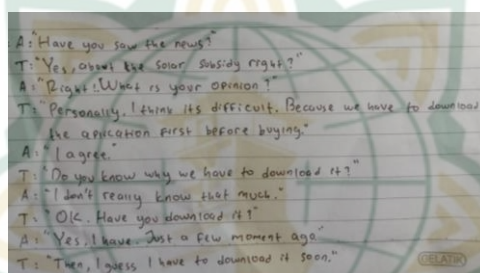 A: "Have you saw the news?"
T: "Yes, about the solar subsidy right?"
A: "Right! What is your opinion?"
T: "Personally, I think its difficult. Because we have to download
the aplication first before buying."
A: "I agree."
T: "Do you know why we have to download it?"
A: "I don't really know that much."
T: "OK. Have you download it?"
A: "Yes, I have. Just a few moment ago"
T: "Then, I guess I have to download it soon."
GELATIK